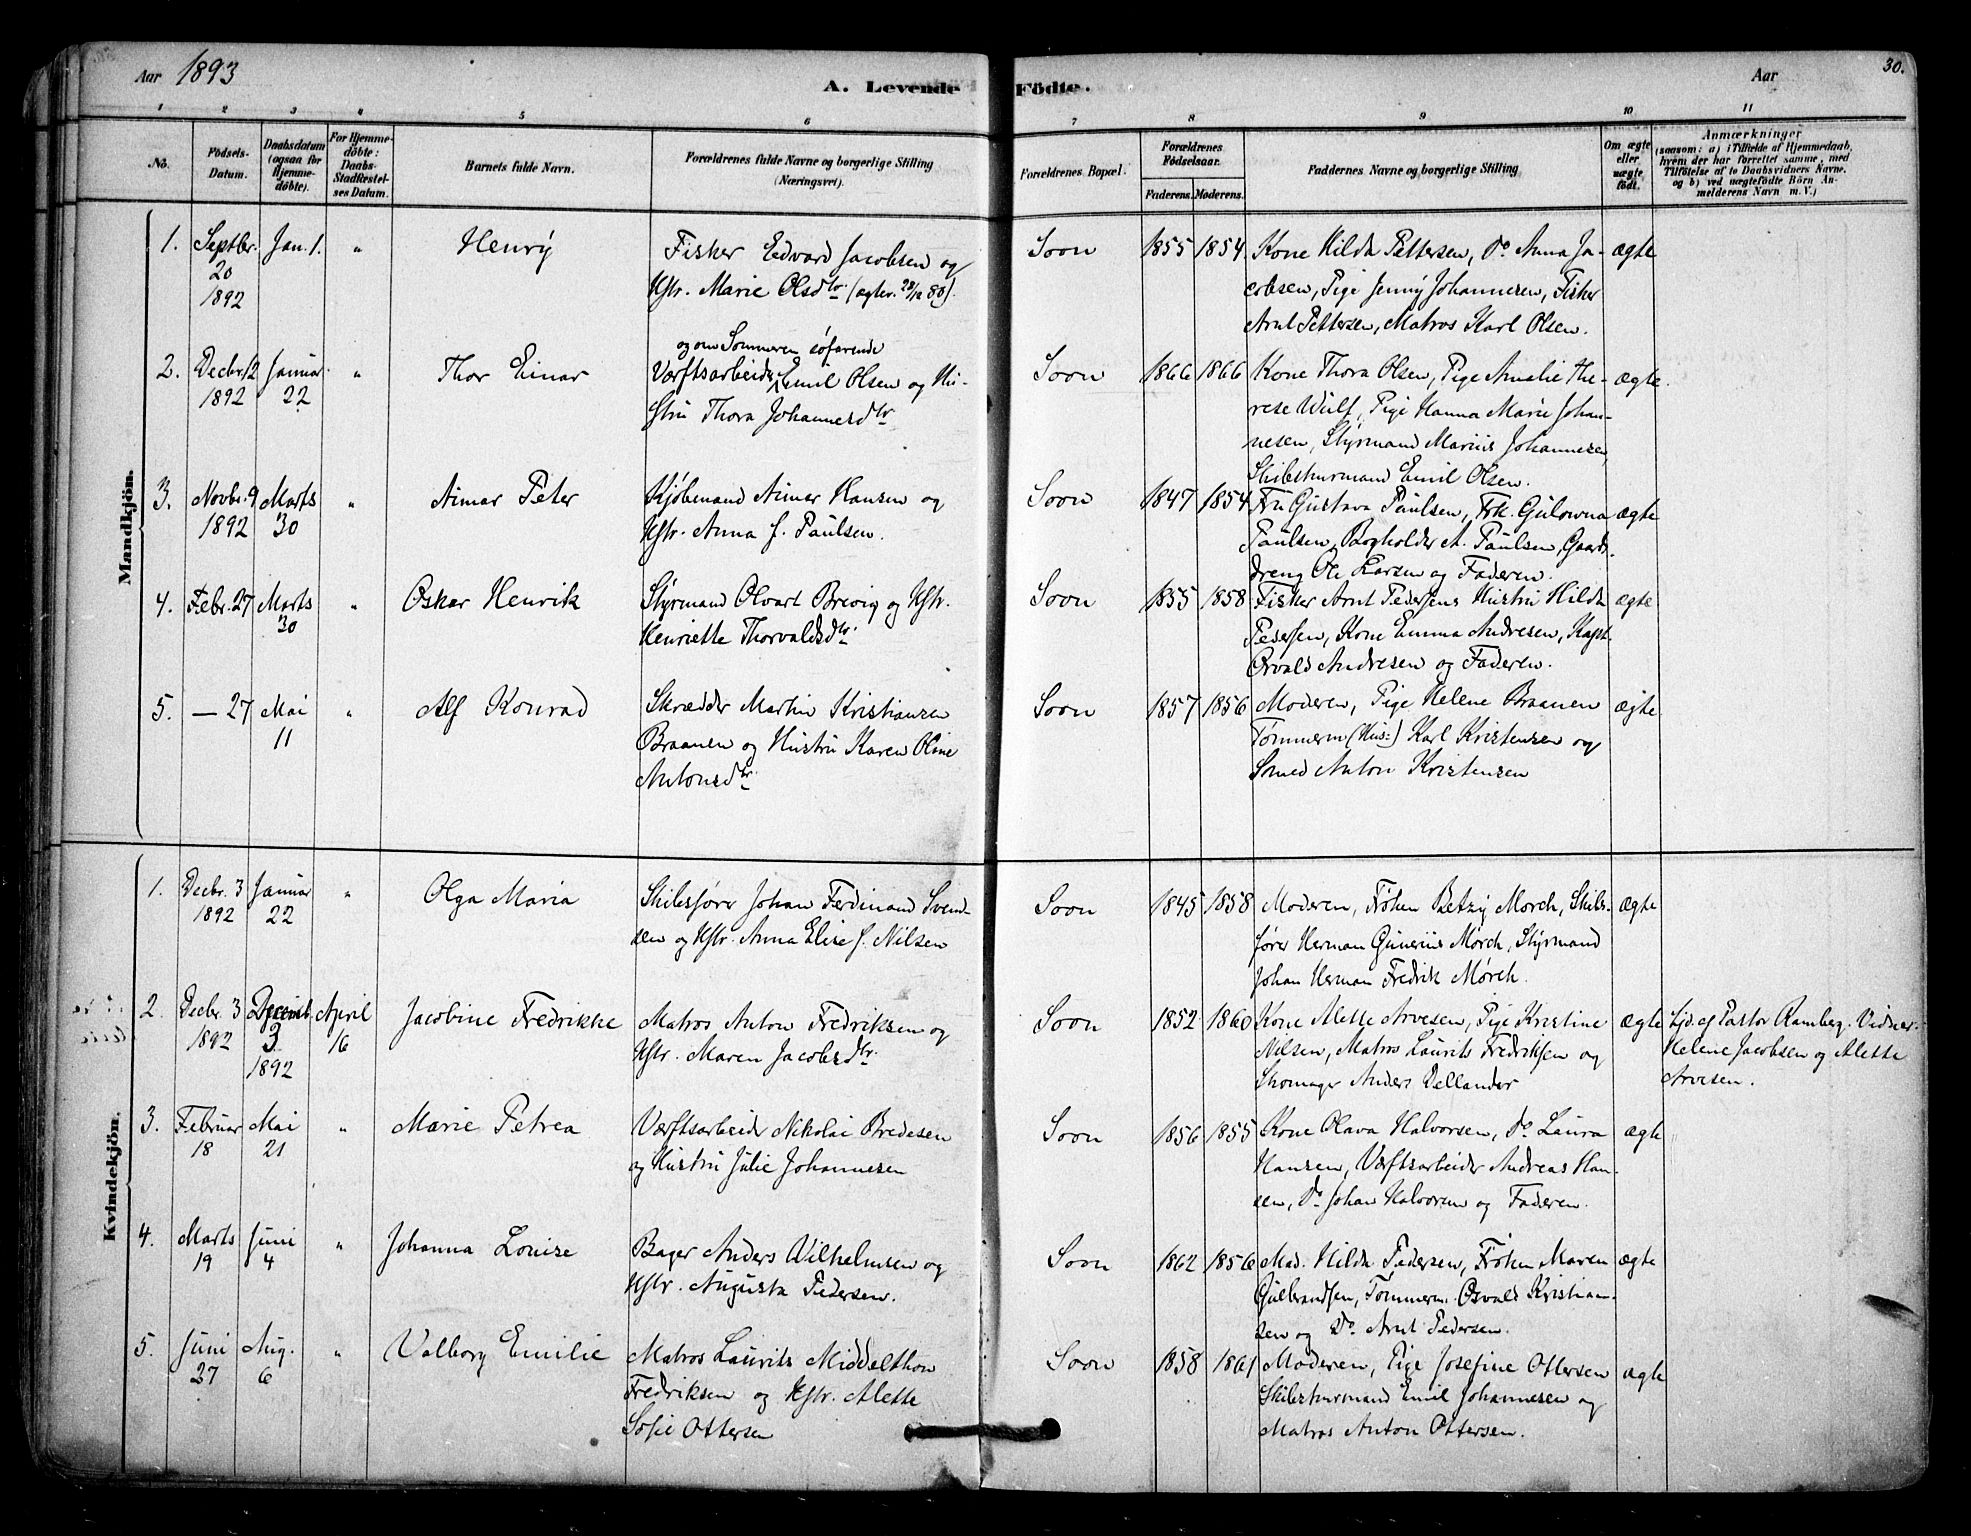 Aar 1893
A. Levende Födte.
Aar
30.
1 2 3 4 5 6 7 8 9 10 11
No.
Födsels-Datum.
Daabsdatum (ogsaa for Hjemmedöbte).
For Hjemmedöbte: Daabs-Stadfæstelses Datum.
Barnets fulde Navn.
Forældrenes fulde Navne og borgerlige Stilling (Næringsvei).
Forældrenes Bopæl.
Forældrenes Födselsaar.
Faderens. Moderens.
Faddernes Navne og borgerlige Stilling.
Om ægte eller uægte födt.
Anmærkninger
(saasom: a) i Tilfælde af Hjemmedaab,
hvem der har forrettet samme, med
Tilföielse af to Daabsvidners Navne.
og b) ved uægtefödte Börn An-
melderens Navn m. V.)
Mandkjön.
1. Septbr. 20 1892 Jan. 1. " Henry
Fisker Edvard Jacobsen og
Hstr. Marie Olsdtr. (ægtev. 28/12 80).
Soon 1855 1854
Kone Hilda Pettersen, Do. Anna Ja-
cobsen, Pige Jenny Johannesen, Fisker
Arnt Pettersen, Matros Karl Olsen.
ægte
2. Decbr. 12 1892 Januar 22 " Thor Einar
og om Sommeren søfarende
Værftsarbeider Emil Olsen og Hu-
stru Thora Johannesdtr
Soon 1866 1866
Kone Thora Olsen, Pige Amalie The-
rese Wulf, Pige Hanna Marie Johan-
nesen, Styrmand Marius Johannesen,
Skibsturmand Emil Olsen.
ægte.
3. Novbr. 9 1892 Marts 30 " Aimar Peter
Kjøbmand Aimar Hansen og
Hstr. Anna f. Paulsen.
Soon 1847 1854
Fru Gustava Paulsen, Frk. Gulowna
Paulsen, Bogholder A. Paulsen, Gaards-
dreng Ole Larsen og Faderen.
ægte
4. Febr. 27 Marts 30 " Oskar Henrik
Styrmand Olvart Brevig og Hstr.
Henriette Thorvaldsdtr.
Soon 1855 1858
Fisker Arnt Pedersens Hustru Hilda
Pedersen, Kone Emma Andresen, Kapt.
Osvald Andresen og Faderen.
ægte
5. — 27 Mai 11 " Alf Konrad
Skrædder Martin Kristiansen
Braanen og Hustru Karen Oline
Antonsdtr.
Soon 1857 1856
Moderen, Pige Helene Braanen
Tømmerm (Hus:) Karl Kristensen og
Smed Anton Kristensen
ægte
Kvindekjön.
1. Decbr. 3 1892 Januar 22 " Olga Maria
Skibsfører Johan Ferdinand Svend-
sen og Hstr. Anna Elise f. Nilsen
Soon 1845 1858
Moderen, Frøken Betzy Mørch, Skibs-
fører Herman Gunerius Mørch, Styrmand
Johan Herman Fredrik Mørch.
ægte
2. Decbr. 3 1892 Decemb. 3 1892 April 16 Jacobine Fredrikke
Matros Anton Fredriksen og
Hstr. Maren Jacobsdtr.
Soon 1852 1860
Kone Alette Arvesen, Pige Kristine
Nilsen, Matros Laurits Fredriksen og
Skomager Anders Dellander
ægte
Hjd. af Pastor Ramberg. Vidner:
Helene Jacobsen og Alette
Arvesen.
3. Februar 18 Mai 21 " Marie Petrea
Værftsarbeider Nikolai Bredesen
og Hustru Julie Johannesen
Soon 1856 1855
Kone Olava Halvorsen, Do. Laura
Hansen, Værftsarbeider Andreas Han-
sen, Do. Johan Halvorsen og Faderen.
ægte
4. Marts 19 Juni 4 " Johanna Louise
Bager Anders Wilhelmsen og
Hstr. Augusta Pedersen.
Soon 1862 1856
Mad. Hilda Pedersen, Frøken Maren
Gulbrandsen, Tømmerm. Osvald Kristian-
sen og Do. Arnt Pedersen.
ægte
5. Juni 27 Aug. 6 " Valborg Emilie
Matros Laurits Middelthon
Fredriksen og Hstr. Alette
Sofie Ottersen
Soon 1858 1861
Moderen, Pige Josefine Ottersen
Skibsturmand Emil Johannesen og
Matros Anton Ottersen.
ægte